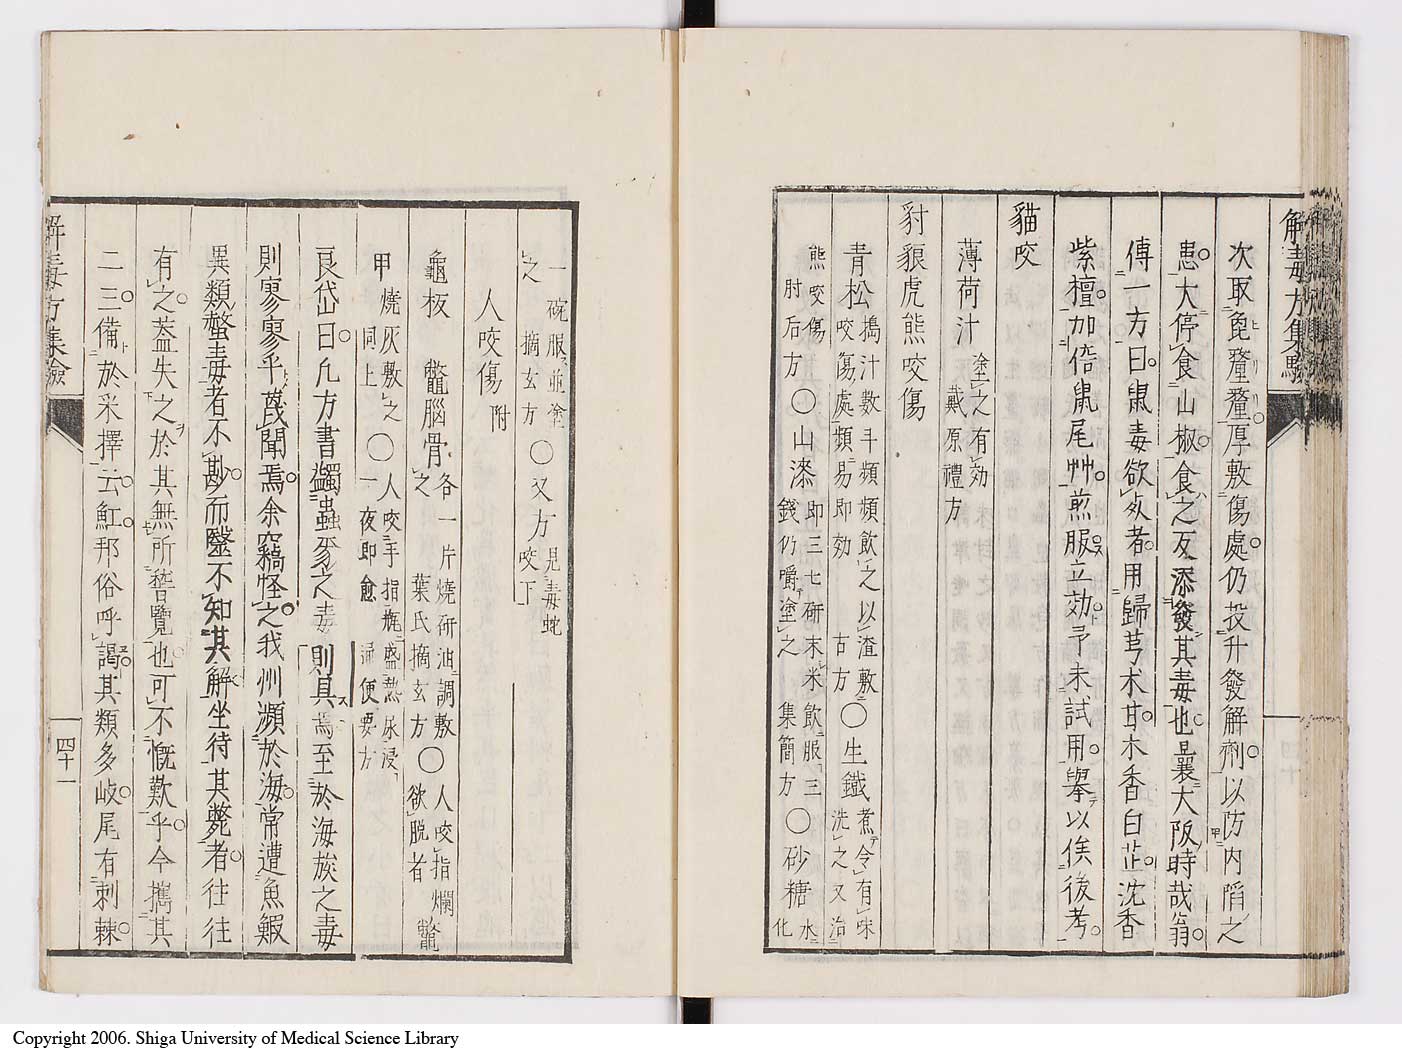 解毒方集驗
次取皀釐釐厚敷傷處仍投升發解劑以防內陷之
患大停食山椒食之反添發其毒也曩大阪時哉翁
傳一方曰鼠毒欲攻者用歸芎朮甘木香白芷沈香
紫檀加倍鼠尾艸煎服立効予未試用擧以俟後考
貓咬
薄荷汁
塗之有効
戴原禮方
豺狼虎熊咬傷
青松
搗汁數斗頻頻飲之以渣敷
咬傷處類易即効 古方
〇生鐵
煮令有味
洗之又治
熊咬傷
肘后方
〇山漆
即三七研末米飲服三
錢仍嚼塗之 集簡方
〇砂糖
水
化
四十
一碗服並塗
之 摘玄方
〇又方
見毒蛇
咬下
人咬傷 附
龜板 鼈腦骨
各一片燒研油調敷
之 葉氏摘玄方
〇人咬指爛
欲脫者
鼈
甲燒灰敷之
同上
〇人咬手指瓶盛熱尿浸
一夜即愈 通便要方
艮岱曰凡方書蠲蟲豸之毒則具焉至於海族之毒
則寥寥乎蔑聞焉余竊怪之我州瀕於海常遭魚鰕
異類螫毒者不尠而毉不知其解坐待其斃者往往
有之蓋失之於其無所誓覽也可不慨歎乎今攜其
二三備於采擇云魟邦俗呼謁其類多岐尾有刺棘
解毒方集驗
四十一
Copyright 2006. Shiga University of Medical Science Library